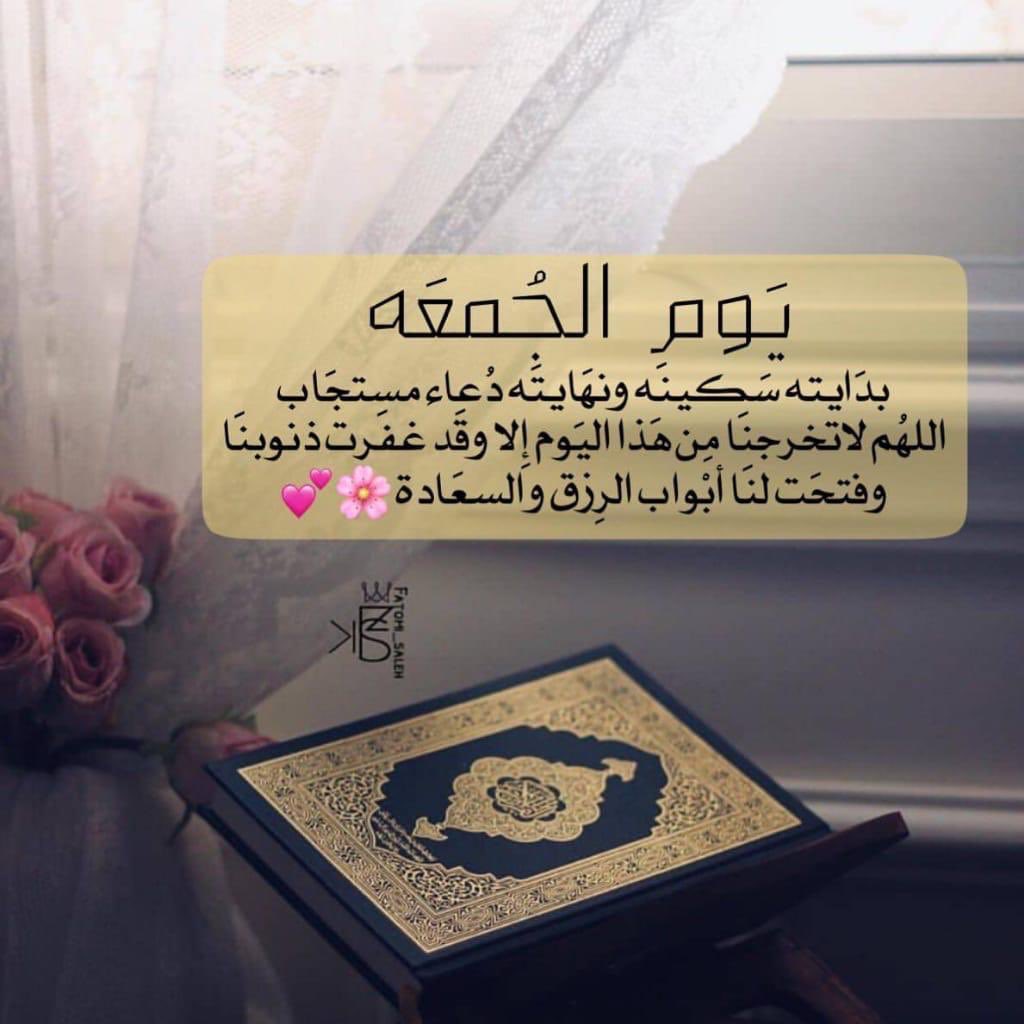 يَوم الجُمعَه
بدَايته سَكينَه ونهَايتِه دُعاء مستجَاب
اللهُم لاتخرجنَا مِن هَذا اليَوم إلا وقَد غفَرت ذنوبنَا
وفتحَت لنَا أبْواب الرِزق والسعَادة 🌸💕
FATOMI_SALEH